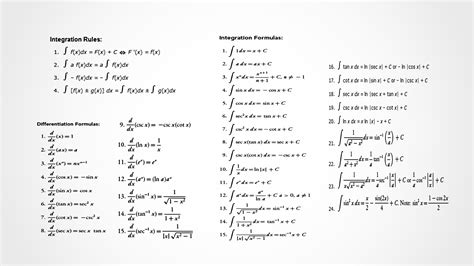 Integration Rules:
1. ∫ f(x)dx = F(x) + C ⇔ F'(x) = f(x)
2. ∫ a f(x)dx = a ∫ f(x)dx
3. ∫ − f(x)dx = − ∫ f(x)dx
4. ∫ [f(x) ± g(x)] dx = ∫ f(x)dx ± ∫ g(x)dx
Differentiation Formulas:
1. d/dx (x) = 1
2. d/dx (ax) = a
3. d/dx (xⁿ) = nxⁿ⁻¹
4. d/dx (cos x) = − sin x
5. d/dx (sin x) = cos x
6. d/dx (tan x) = sec² x
7. d/dx (cot x) = − csc² x
8. d/dx (sec x) = sec x tan x
9. d/dx (csc x) = − csc x(cot x)
10. d/dx (ln x) = 1/x
11. d/dx (eˣ) = eˣ
12. d/dx (aˣ) = (ln a)aˣ
13. d/dx (sin⁻¹ x) = 1/√(1 − x²)
14. d/dx (tan⁻¹ x) = 1/(1 + x²)
15. d/dx (sec⁻¹ x) = 1/(|x| √(x² − 1))
Integration Formulas:
1. ∫ 1 dx = x + C
2. ∫ a dx = ax + C
3. ∫ xⁿ dx = xⁿ⁺¹/(n + 1) + C, n ≠ −1
4. ∫ sin x dx = − cos x + C
5. ∫ cos x dx = sin x + C
6. ∫ sec² x dx = tan x + C
7. ∫ csc² x dx = − cot x + C
8. ∫ sec x tan x dx = sec x + C
9. ∫ csc x cot x dx = − csc x + C
10. ∫ 1/x dx = ln |x| + C
11. ∫ eˣ dx = eˣ + C
12. ∫ aˣ dx = aˣ/ln a + C a > 0, a ≠ 1
13. ∫ 1/√(1 − x²) dx = sin⁻¹ x + C
14. ∫ 1/(1 + x²) dx = tan⁻¹ x + C
15. ∫ 1/(|x| √(x² − 1)) dx = sec⁻¹ x + C
16. ∫ tan x dx = ln |sec x| + C or − ln |cos x| + C
17. ∫ cot x dx = ln |sin x| + C or − ln |csc x| + C
18. ∫ sec x dx = ln |sec x + tan x| + C
19. ∫ csc x dx = ln |csc x − cot x| + C
20. ∫ ln x dx = x ln |x| − x + C
21. ∫ 1/√(a² − x²) dx = sin⁻¹ (x/a) + C